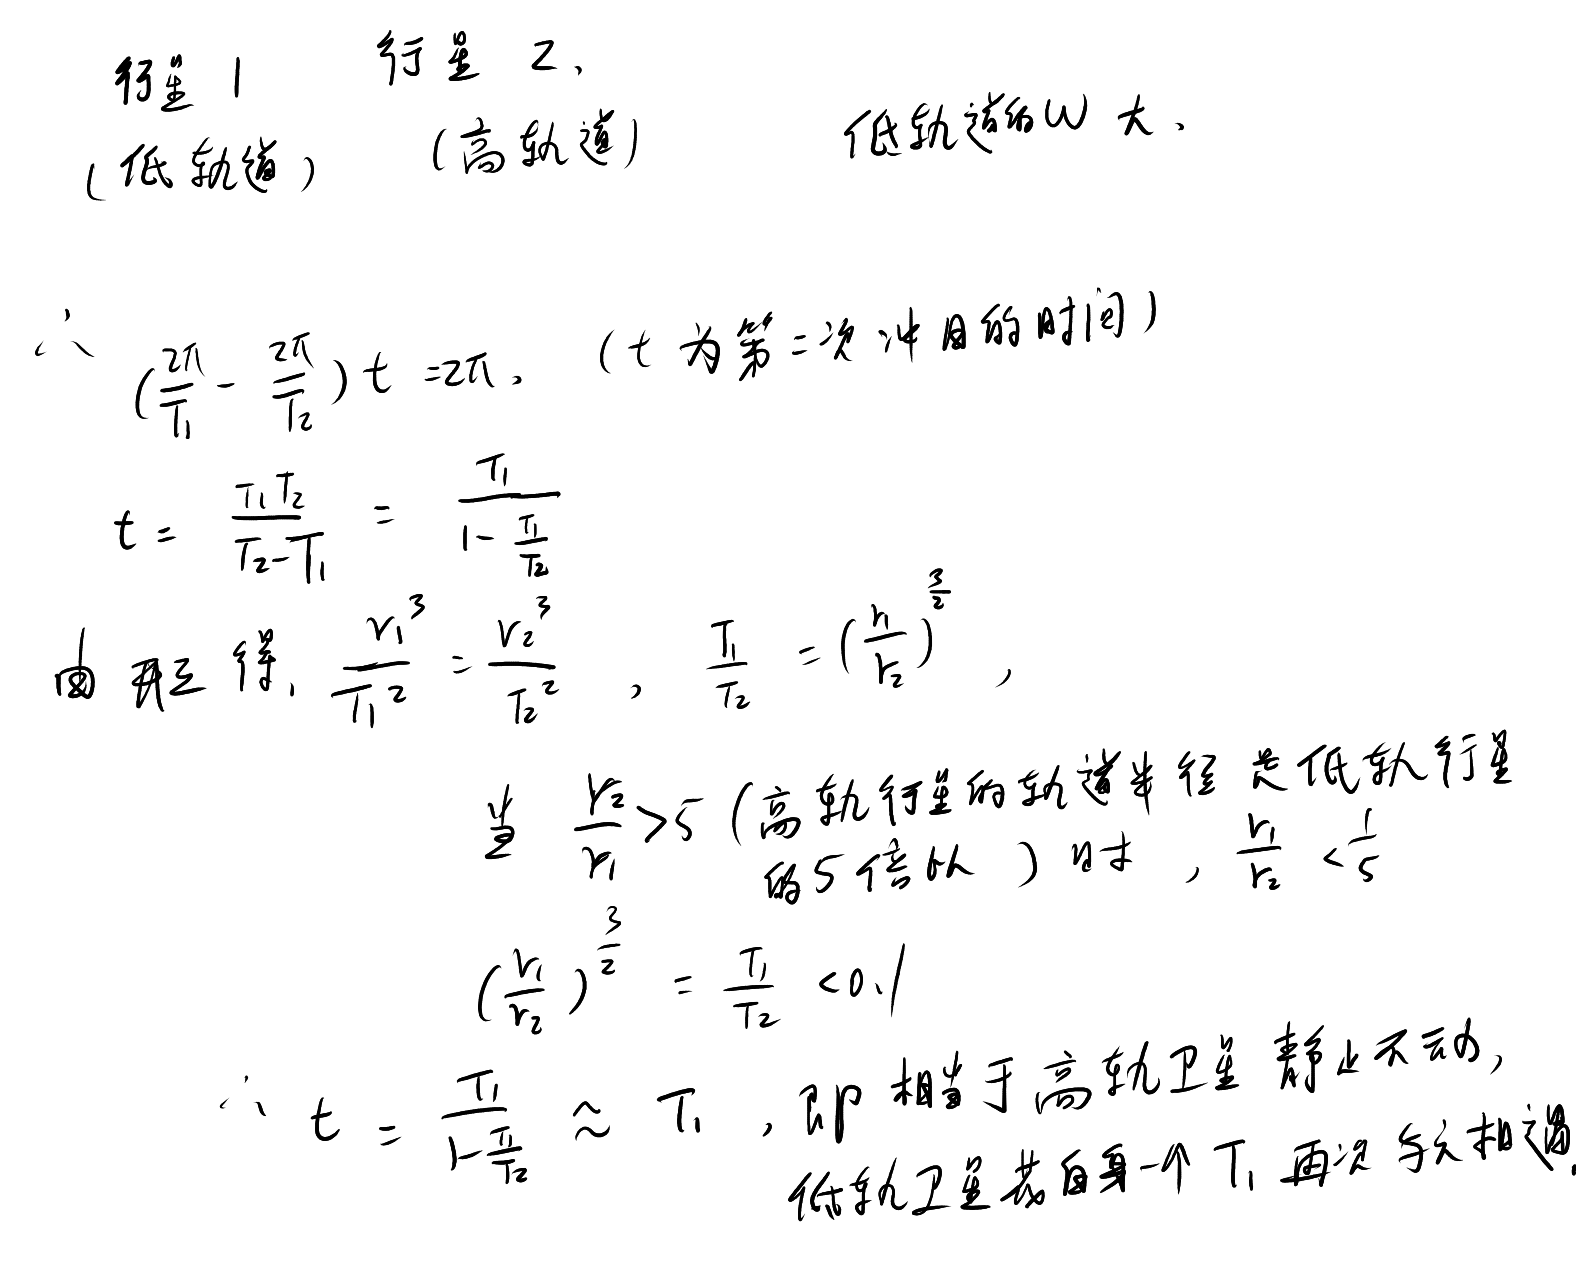 行星 1 行星 2、
(低轨道) (高轨道) 低轨道的ω 大、
∴ (2π/T₁ - 2π/T₂) t =2π, (t 为第二次冲日的时间)
t = T₁T₂/(T₂-T₁) = T₁/(1-T₁/T₂)
由 开三 得, r₁³/T₁² = r₂³/T₂² , T₁/T₂ = (r₁/r₂)^(3/2) ,
当 r₂/r₁ >5 (高轨行星的轨道半径 是低轨行星
的5倍以 ) 时 , r₁/r₂ < 1/5
(r₁/r₂)^(3/2) = T₁/T₂ <0.1
∴ t = T₁/(1-T₁/T₂) ≈ T₁ , 即 相当于高轨卫星 静止不动,
低轨卫星花自身一个 T₁ 再次 与之相遇.